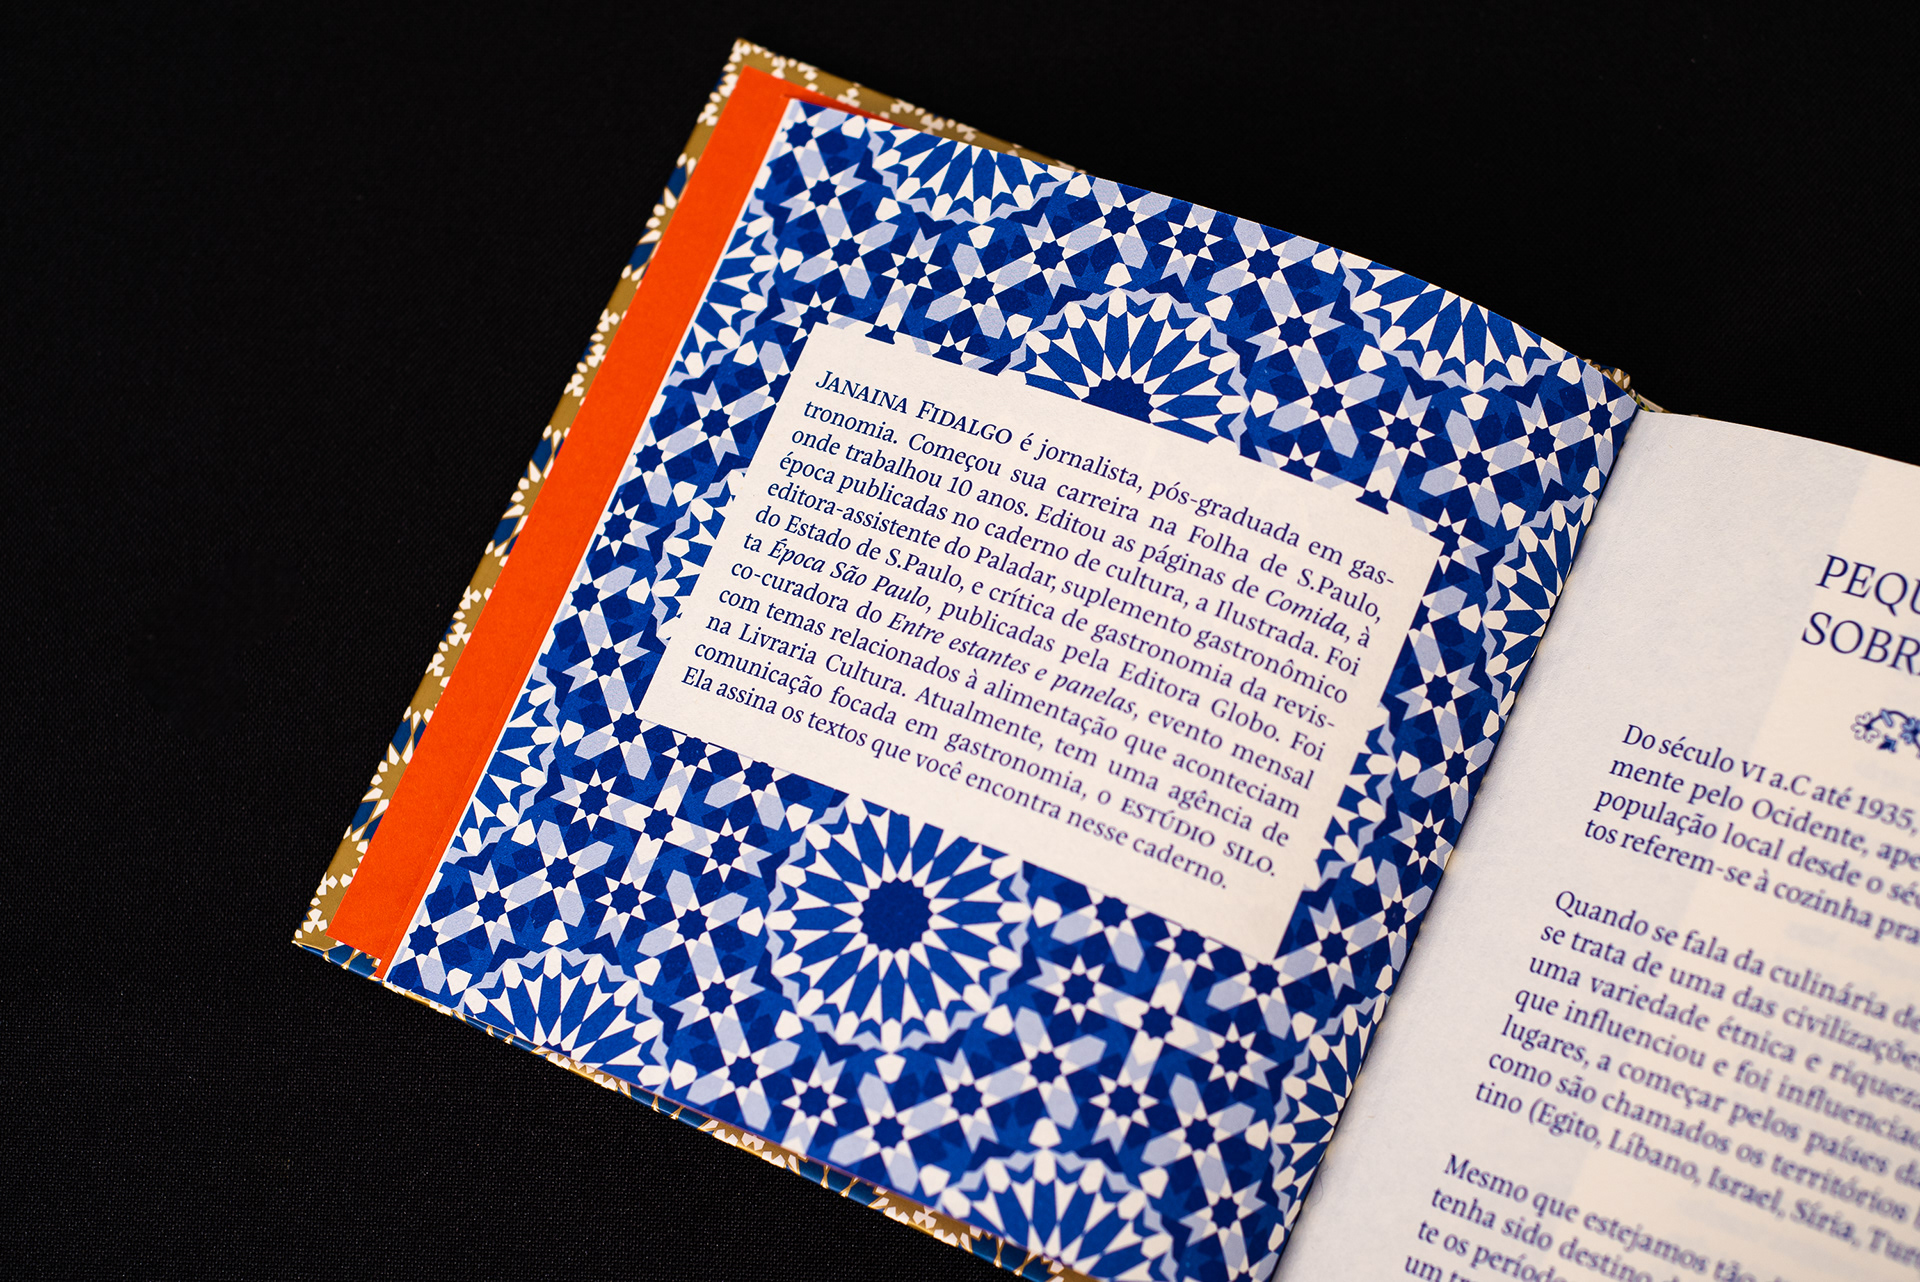 JANAINA FIDALGO é jornalista, pós-graduada em gas-
tronomia. Começou sua carreira na Folha de S.Paulo,
onde trabalhou 10 anos. Editou as páginas de Comida, à
época publicadas no caderno de cultura, a Ilustrada. Foi
editora-assistente do Paladar, suplemento gastronômico
do Estado de S.Paulo, e crítica de gastronomia da revis-
ta Época São Paulo, publicadas pela Editora Globo. Foi
co-curadora do Entre estantes e panelas, evento mensal
com temas relacionados à alimentação que aconteciam
na Livraria Cultura. Atualmente, tem uma agência de
comunicação focada em gastronomia, o ESTÚDIO SILO.
Ela assina os textos que você encontra nesse caderno.
PEQU
SOBR
Do século VI a.C até 1935,
mente pelo Ocidente, ape
população local desde o séc
tos referem-se à cozinha pra
Quando se fala da culinária de
se trata de uma das civilizações
uma variedade étnica e riqueza
que influenciou e foi influenciad
lugares, a começar pelos países da
como são chamados os territórios
tino (Egito, Líbano, Israel, Síria, Turq
Mesmo que estejamos tão
tenha sido destino
te os período
um tr